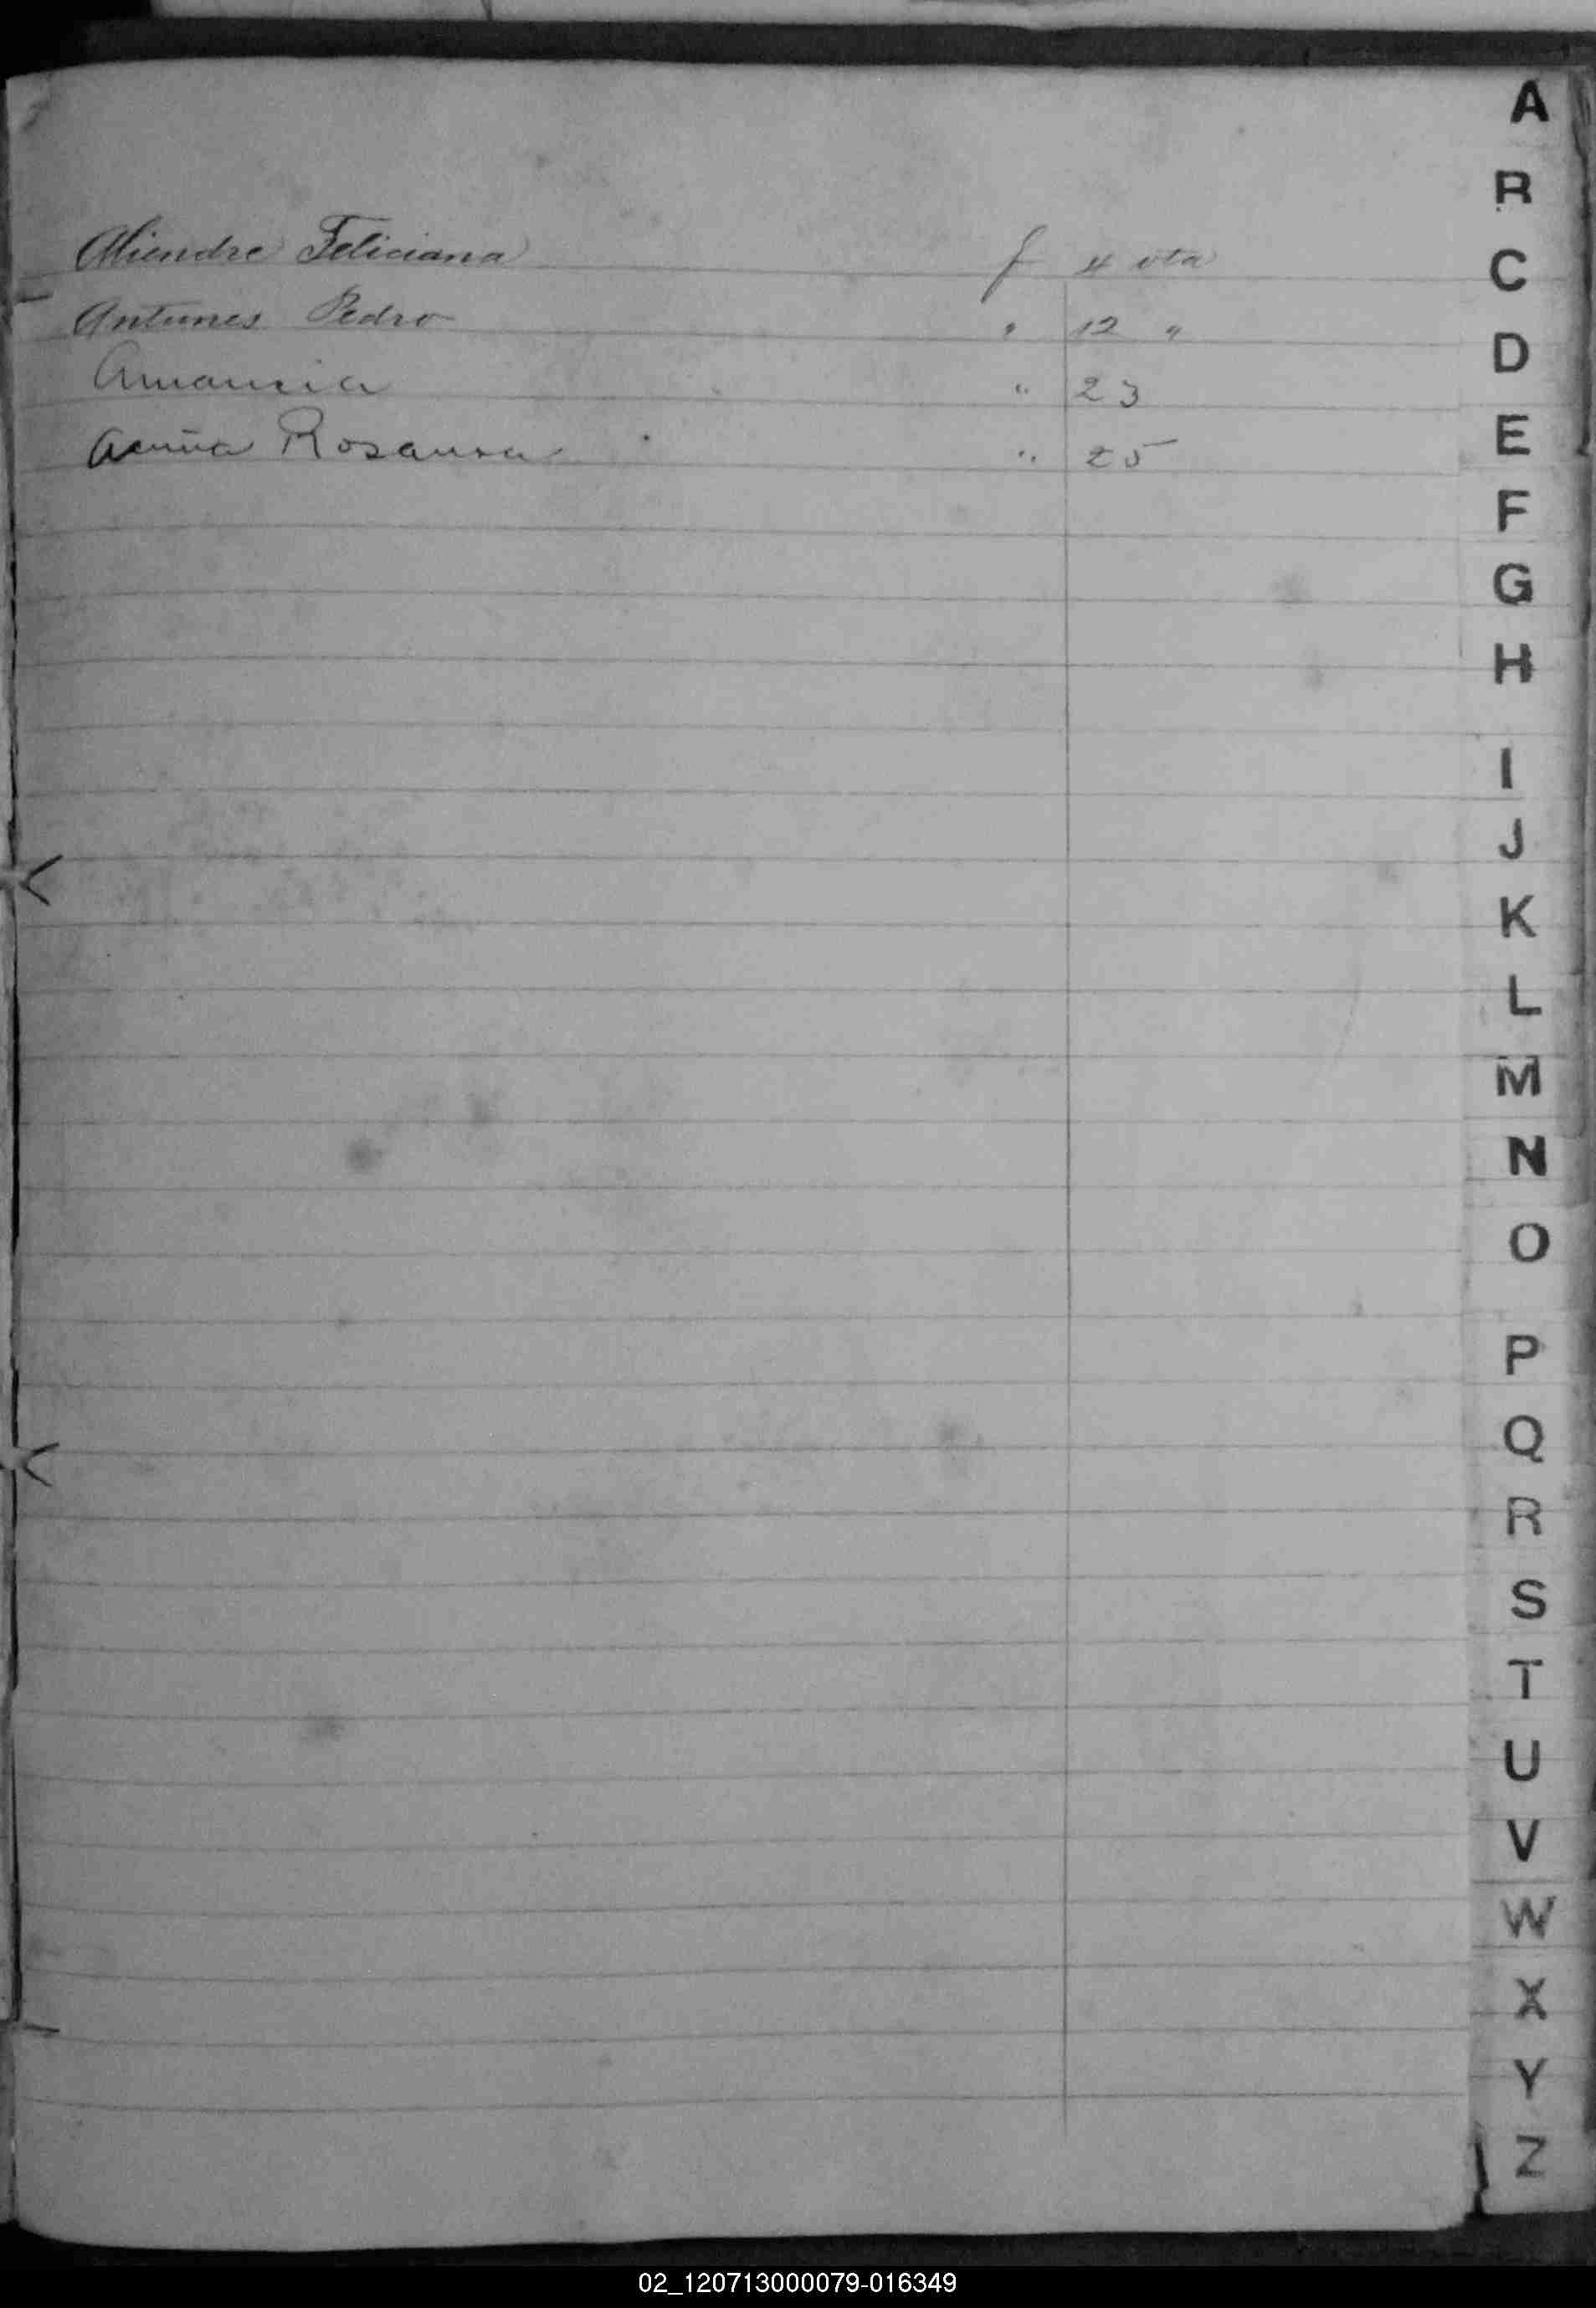 Aliendre Feliciana f 4 vta
Antunes Pedro " 12 "
Amancia " 23
Acuña Rosaura " 25
A
R
C
D
E
F
G
H
I
J
K
L
M
N
O
P
Q
R
S
T
U
V
W
X
Y
Z
02_120713000079-016349